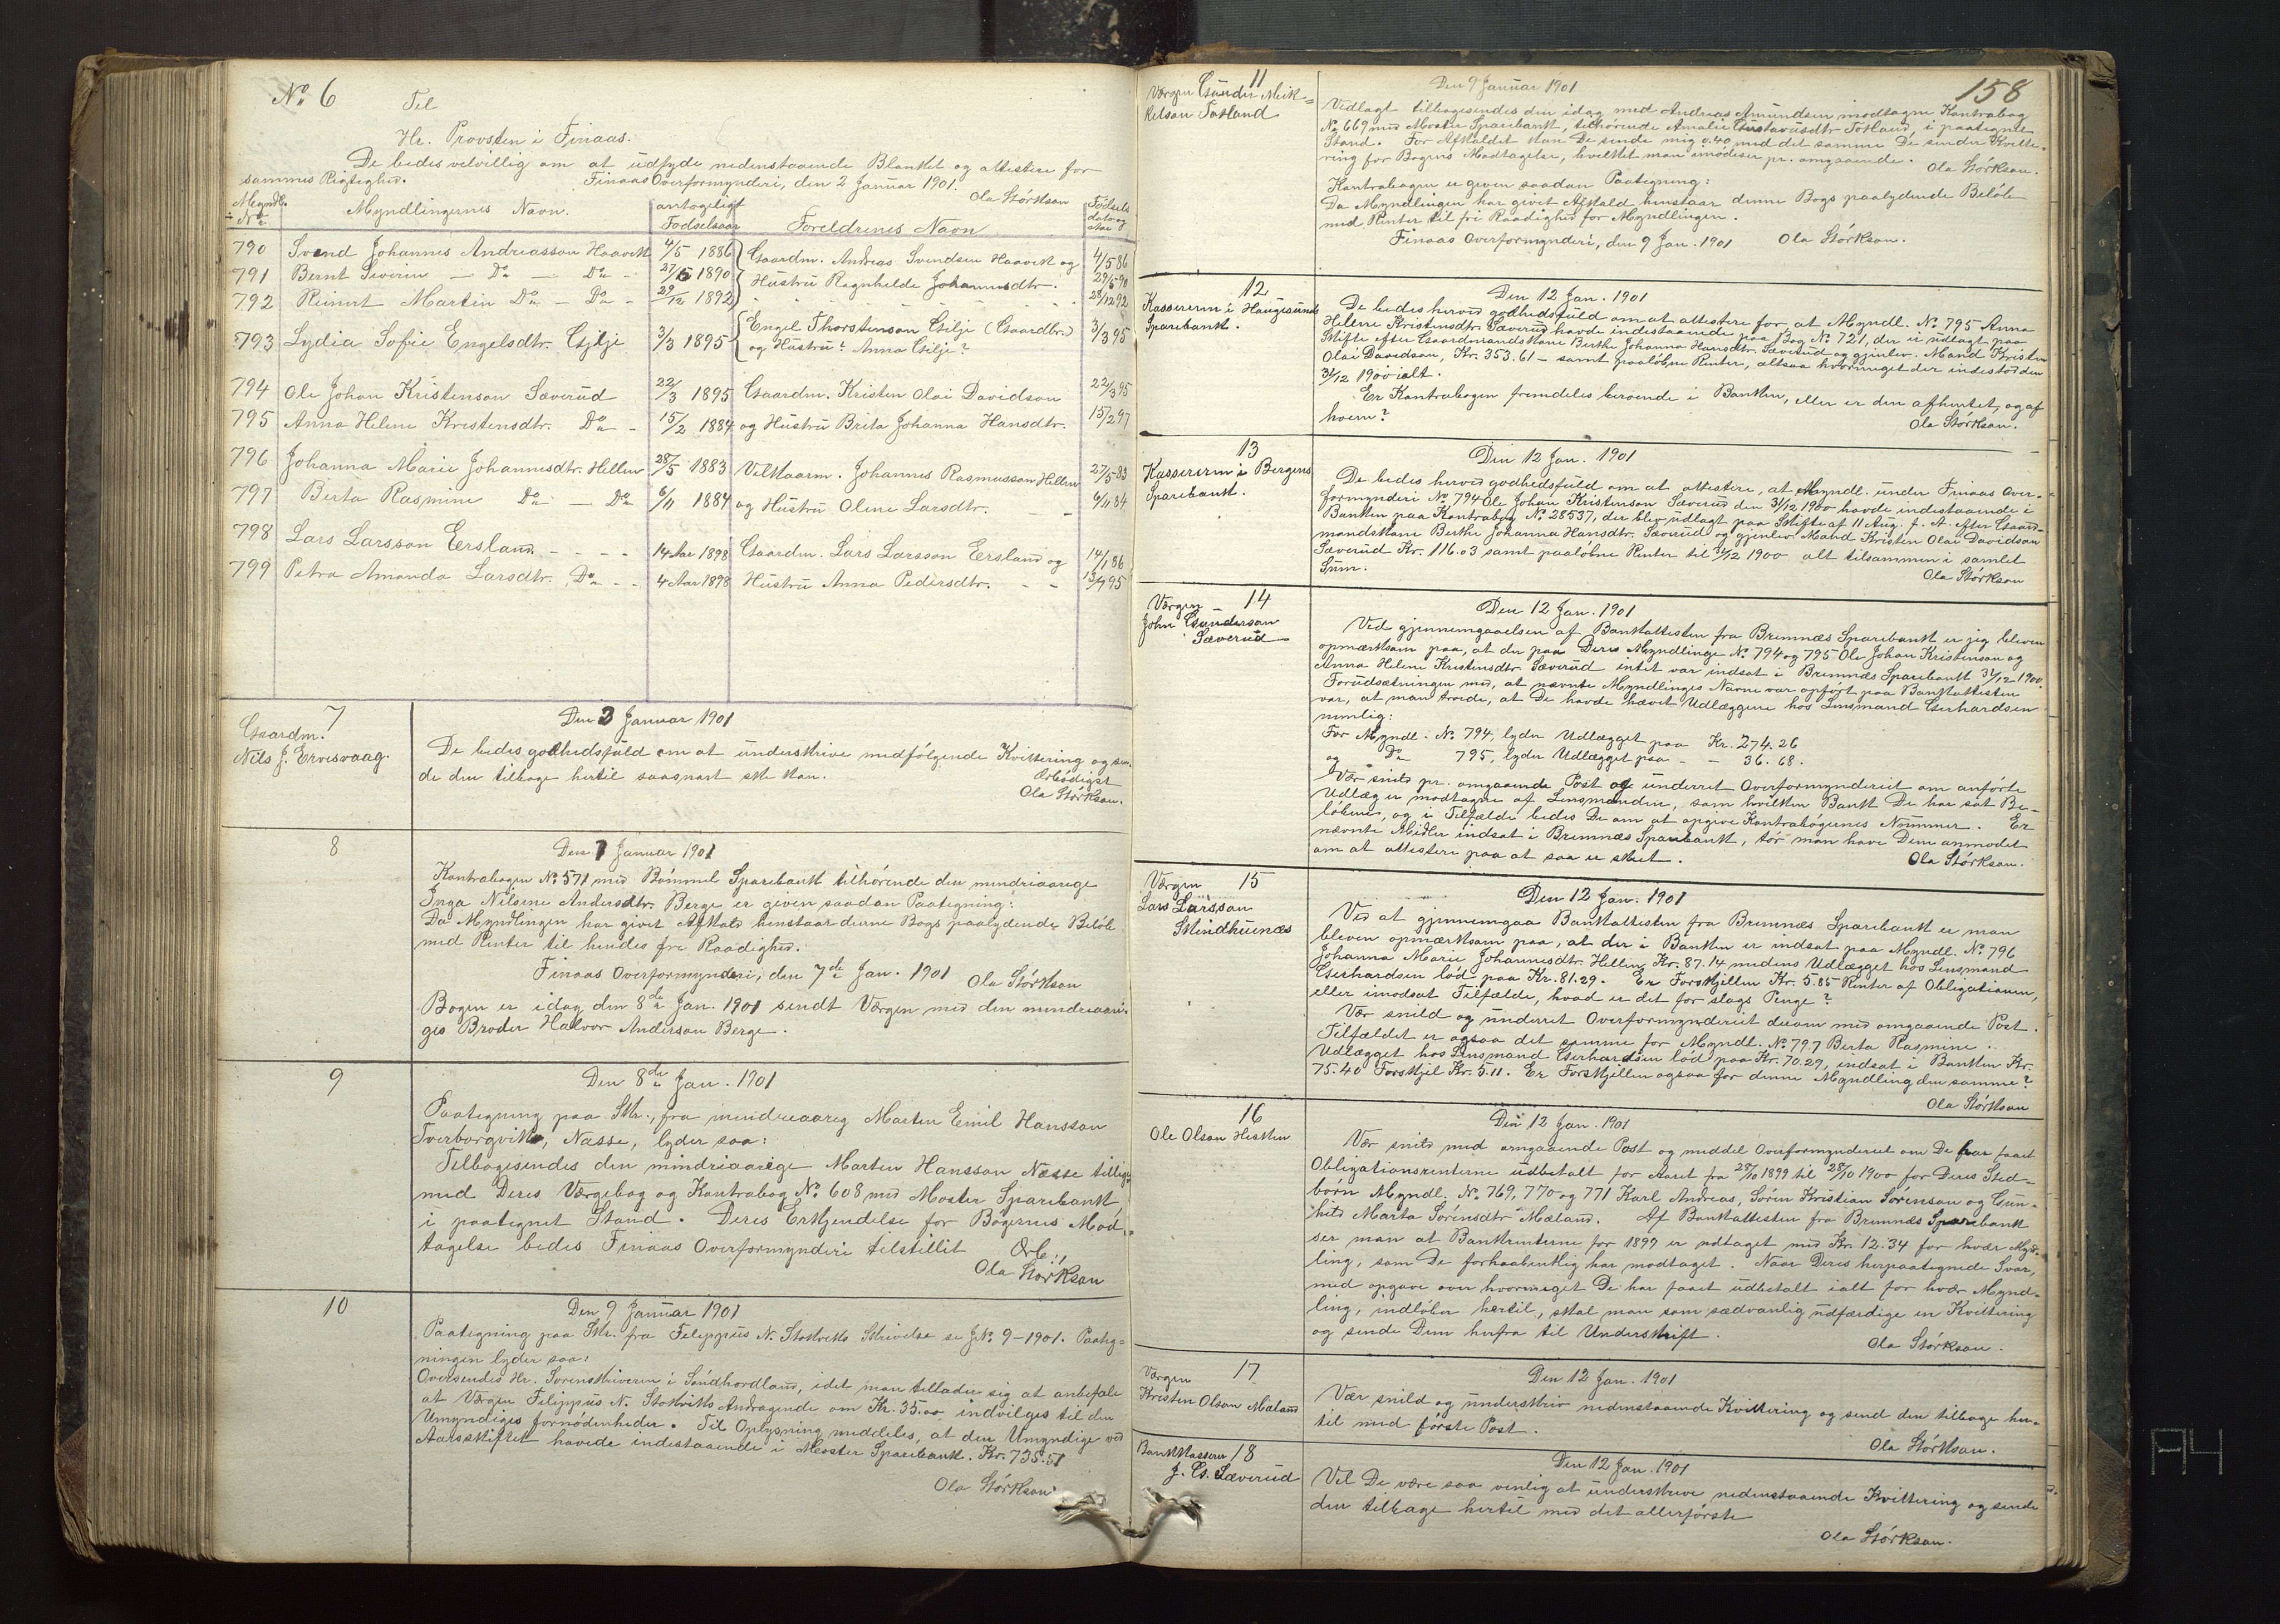 No 6
Til
Hr. Provsten i Finaas.
De bedes velvillig om at udfylde nedenstaaende Blanket og attestere for
sammes Rigtighed. Finaas Overformynderi, den 2 Januar 1901.
Ola Störkson
Myndl. No Myndlingernes Navn. antageligt Fødselsaar Foreldrenes Navn Födsels dato og Aar
790 Svend Johannes Andreasson Haavik 4/5 1886 Gaardm. Andreas Svendsen Haavik og 4/5 86
791 Bernt Severin — Do — Do - 27/5 1890 Hustru Ragnhilde Johannesdtr. 29/5 90
792 Reinert Martin Do - Do - 29/12 1892 28/12 92
793 Lydia Sofie Engelsdtr. Gjilje 3/3 1895 Engel Thorstenson Gilje (Gaardbr.) 3/3 95
og Hustru? Anna Gilje?
794 Ole Johan Kristenson Sæverud 22/3 1895 Gaardm. Kristen Olai Davidson 22/3 95
795 Anna Helene Kristensdtr. Do - 15/2 1884 og Hustru Brita Johanna Hansdtr. 15/2 97
796 Johanna Marie Johannesdtr. Hellen 28/5 1883 Velkaarm. Johannes Rasmusson Hellen 27/5 83
797 Berta Rasmine Do — Do 6/11 1884 og Hustru Oline Larsdtr. 6/11 84
798 Lars Larsson Eersland - - - - 14 Aar 1898 Gaardm. Lars Larsson Eersland og 14/1 86
799 Petra Amanda Larsdtr. Do - - 4 Aar 1898 Hustru Anna Pedersdtr. - - 13/7 95
7
Gaardm.
Nils J. Ervesvaag.
Den 3 Januar 1901
De bedes godhedsfuld om at underskrive medfölgende Kvittering og sen-
de den tilbage hertil saasnart ske kan.
Ærbödigst
Ola Störkson.
8
Den 7 Januar 1901
Kontrabogen No 571 med Bömmel Sparebank tilhörende den mindreaarige
Inga Nilsine Andersdtr. Berge er given saadan Paategning:
Da Myndlingen har givet Afkald henstaar denne Bogs paalydende Belöb
med Renter til hendes fri Raadighed.
Finaas Overformynderi, den 7de Jan. 1901 Ola Störkson
Bogen er idag den 8de Jan. 1901 sendt Værgen med den mindreaari-
ges Broder Halvor Anderson Berge.
9
Den 8de Jan. 1901
Paategning paa Skr., fra mindreaarig Marten Emil Hansson
Tverborgvik, Næsse, lyder saa:
Tilbagesendes den mindreaarige Marten Hansson Næsse tillige
med Deres Værgebog og Kontrabog No 608 med Moster Sparebank
i paategnet Stand. Deres Erkjendelse for Bögernes Mod-
tagelse bedes Finaas Overformynderi tilstillet Ærb:
Ola Störkson
10
Den 9 Januar 1901
Paategning paa Skr. fra Felippus N. Stokviks Skrivelse se J No. 9-1901. Paateg-
ningen lyder saa:
Oversendes Hr. Sorenskriveren i Söndhordland, idet man tillader sig at anbefale
at Værgen Filippus N. Stokviks Andragende om Kr. 35.00 indvilges til den
Umyndiges fornödenheder. Til Oplysning meddeles, at den Umyndige ved
Aarsskiftet havde indestaaende i Moster Sparebank. Kr. 735.51
Ola Störkson
158
11
Værgen Gunder Mik-
kelson Totland
Den 9 Januar 1901
Vedlagt tilbagesendes den idag med Andreas Amundsen modtagne Kontrabog
No 669 med Moster Sparebank, tilhörende Amalie Gustavusdtr Totland, i paategnet
Stand. For Afkaldet kan De sende mig 0.40 med det samme De sender Kvitte-
ring for Bogens Modtagelse, hvilket man imödeser pr. omgaaende. Ola Störkson.
Kontrabogen er given saadan Paategning:
Da Myndlingen har givet Afkald henstaar denne Bogs paalydende Belöb
med Renter til fri Raadighed for Myndlingen.
Finaas Overformynderi, den 9 Jan. 1901 Ola Störkson.
12
Kassereren i Haugesunds
Sparebank.
Den 12 Jan. 1901
De bedes herved godhedsfuld om at attestere for at Myndl. No. 795 Anna
Helene Kristensdtr. Sæverud havde indestaaende paa Bog No 721, der er udlagt paa
Skifte efter Gaardmandskone Berthe Johanna Hansdtr. Sæverud og gjenlev. Mand Kristen
Olai Davidson, Kr. 353.61 – samt paalöbne Renter, altsaa hvormeget der indestod den
31/12 1900 ialt.
Er Kontrabogen fremdeles beroende i Banken, eller er den afhentet, og af
hvem?
Ola Störkson.
13
Kassereren i Bergens
Sparebank.
Den 12 Jan. 1901
De bedes herved godhedsfuld om at attestere, at Myndl. under Finaas Over-
formynderi No 794 Ole Johan Kristenson Sæverud den 31/12 1900 havde indestaaende i
Banken paa Kontrabog No 28537, der blev udlagt paa Skifte af 11 Aug. f. A. efter Gaard-
mandskone Berthe Johanna Hansdtr. Sæverud og gjenlev. Mand Kristen Olai Davidson
Sæverud Kr. 116.03 samt paalöbne Renter til 31/12 1900 alt tilsammen i samlet
Sum.
Ola Störkson
14
Værgen
John Gunderson
Sæverud
Den 12 Jan. 1901
Ved gjennemgaaelsen af Bankattesten fra Bremnæs Sparebank er jeg bleven
opmærksom paa, at der paa Deres Myndlinge No. 794 og 795 Ole Johan Kristenson og
Anna Helene Kristensdtr. Sæverud intet var indsat i Bremnæs Sparebank 31/12 1900.
Forudsætningen med, at nævnte Myndlinges Navne var opfört paa Bankattesten
var, at man troede, at De havde hævet Udlæggene hos Lensmand Gerhardsen
nemlig:
For Myndl. No. 794, lyder Udlægget paa Kr. 274.26
og Do 795, lyder Udlægget paa - - 36.68.
Vær snild pr. omgaaende Post og underret Overformynderiet om anförte
Udlæg er modtagne af Lensmanden, som hvilken Bank De har sat Be-
löbene, og i Tilfælde bedes De om at opgive Kontrabögernes Nummer. Er
nævnte Midler indsat i Bremnæs Sparebank, tör man have Dem anmodet
om at attestere paa at saa er skeet.
Ola Störkson.
15
Værgen
Lars Larsson
Skindhuenæs
Den 12 Jan. 1901
Ved at gjennemgaa Bankattesten fra Bremnæs Sparebank er man
bleven opmærksom paa, at der i Banken er indsat paa Myndl. No. 796
Johanna Marie Johannesdtr. Hellen Kr. 87.14, medens Udlægget hos Lensmand
Gerhardsen löd paa Kr. 81.29. Er Forskjellen Kr. 5.85 Renter af Obligationen,
eller imodsat Tilfælde, hvad er det for slags Penge?
Vær snild og underret Overformynderiet derom med omgaaende Post.
Tilfældet er ogsaa det samme for Myndl. No. 797 Berta Rasmine.
Udlægget hos Lensmand Gerhardsen löd paa Kr. 70.29, indsat i Banken Kr.
75.40 Forskjel Kr. 5.11. Er Forskjellen ogsaa for denne Myndling den samme?
Ola Störkson
16
Ole Olson Hesken
Den 12 Jan. 1901
Vær snild med omgaaende Post og meddel Overformynderiet om De har faaet
Obligationsrenterne udbetalt for Aaret fra 28/10 1899 til 28/10 1900 for Deres Sted-
börn Myndl. No. 769, 770 og 771 Karl Andreas, Sören Kristian Sörenson og Gun-
hild Marta Sörensdtr Mæland. Af Bankattesten fra Bremnæs Sparebank
ser man at Bankrenterne for 1899 er udtaget med Kr. 12.34 for hvær Mynd-
ling, som De forhaabentlig har modtaget. Naar Deres herpaategnede Svar,
med opgave over hvormeget De har faaet udbetalt ialt for hvær Mynd-
ling, indlöber hertil, skal man som sædvanlig udfærdige en Kvittering
og sende Dem herfra til Underskrift.
Ola Störkson.
17
Værgen
Kristen Olson Mæland
Den 12 Jan. 1901
Vær snild og underskriv nedenstaaende Kvittering og send den tilbage her-
til med förste Post.
Ola Störkson.
18
Bankkasserer
J. G. Sæverud
Den 12 Jan. 1901
Vil De være saa venlig at underskrive nedenstaaende Kvittering og sende
den tilbage hertil med det allerförste
Ola Störkson.